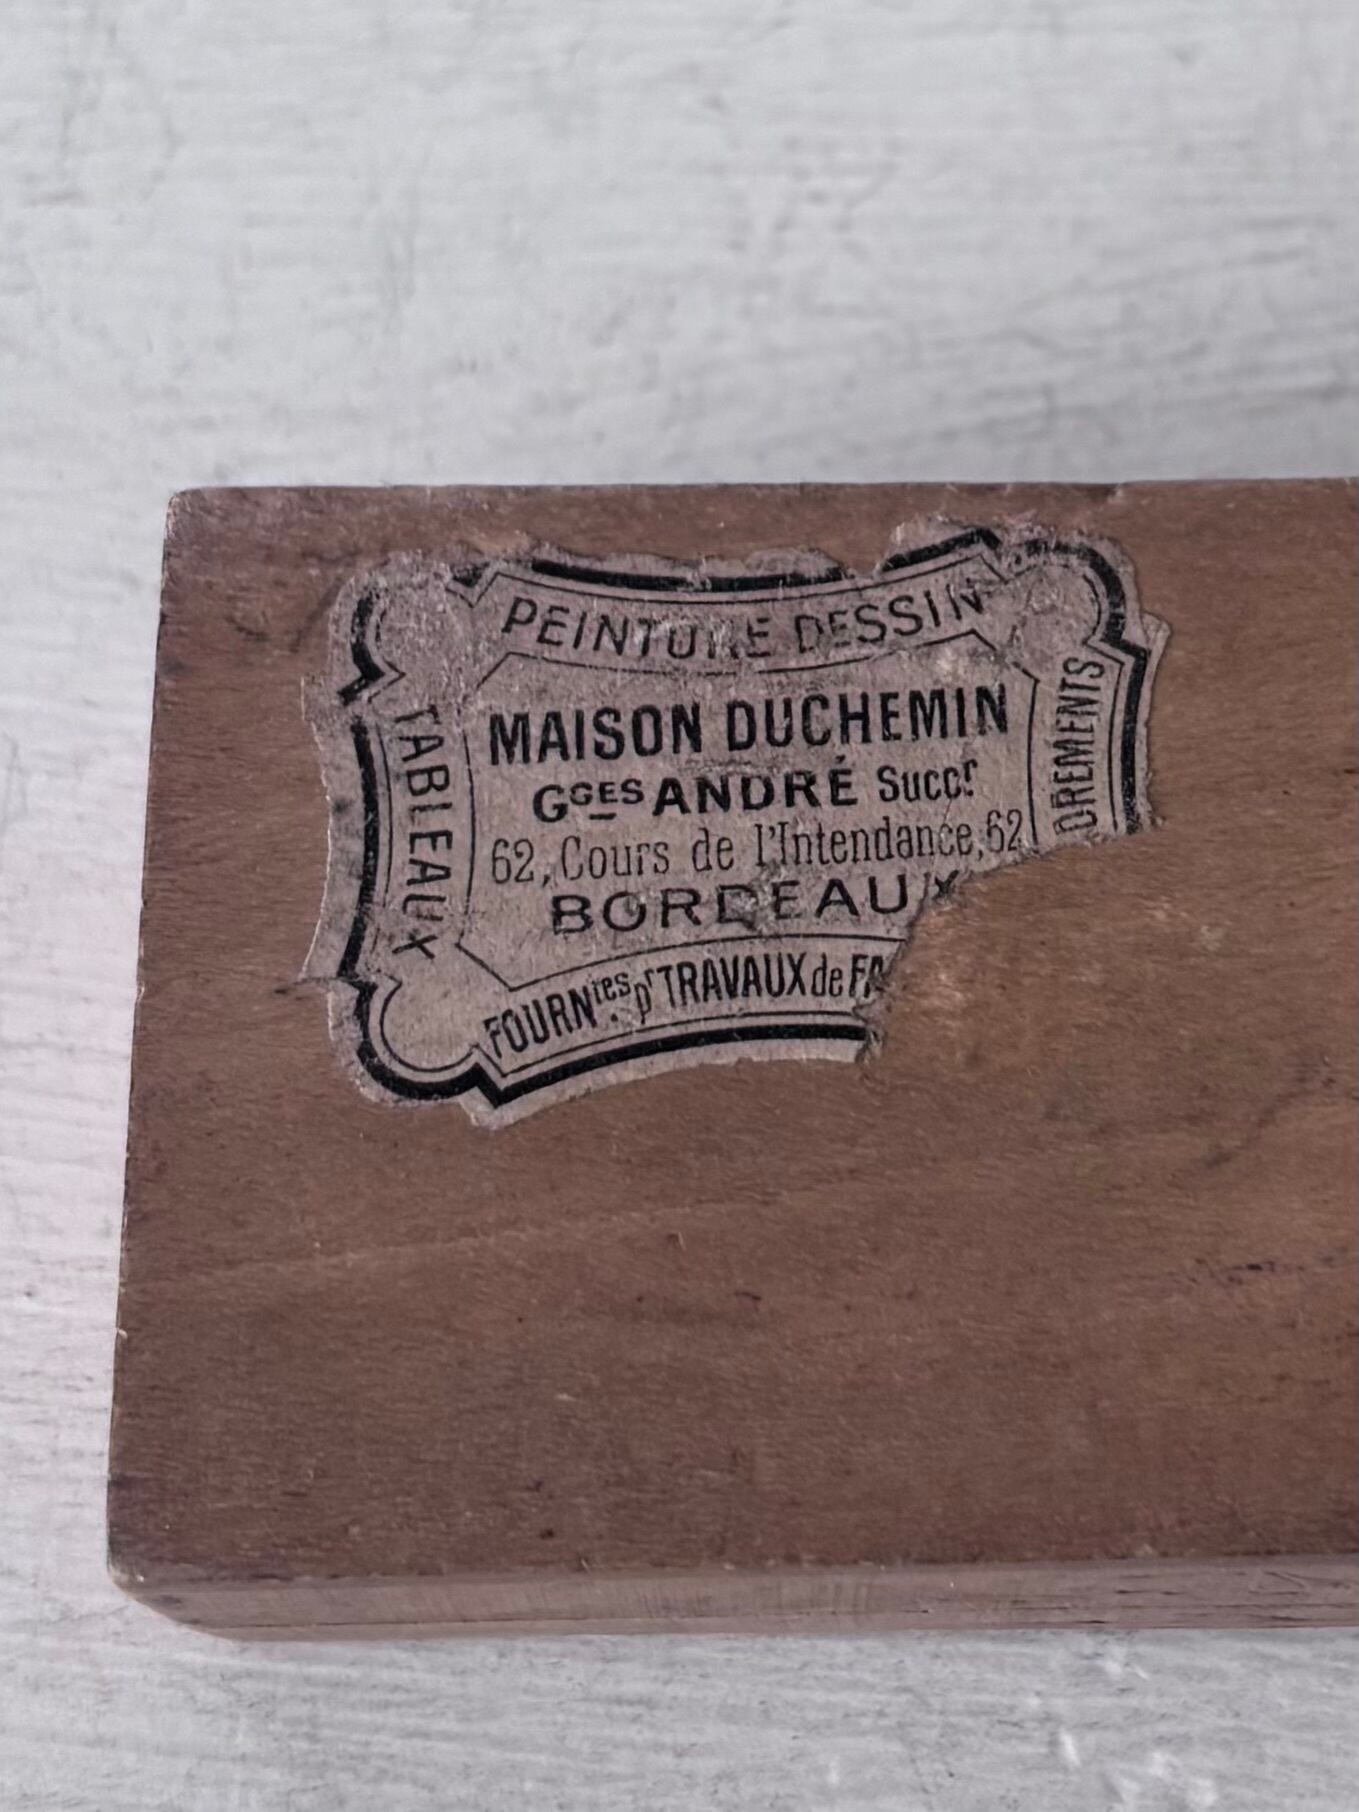 PEINTURE DESSIN
TABLEAUX
MAISON DUCHEMIN
Gges ANDRÉ Succr
62, Cours de l'Intendance, 62
BORDEAUX
FOURNres pr TRAVAUX de FA
DREMENTS